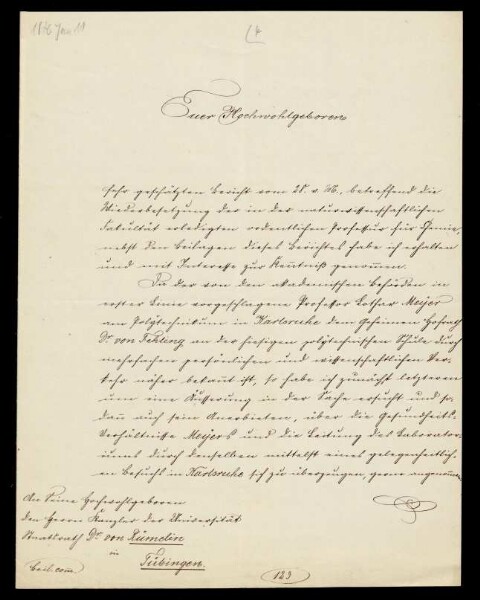 1876 Jan 11
Euer Hochwohlgeboren
sehr geschätzten Bericht vom 28. v. Ms., betreffend die
Wiederbesetzung der in der naturwissenschaftlichen
Fakultät erledigten ordentlichen Professur für Chemie,
nebst den Beilagen dieses Berichtes habe ich erhalten
und mit Interesse zur Kenntniß genommen.
Da der von den akademischen Behörden in
erster Linie vorgeschlagene Professor Lothar Meyer
am Polytechnikum in Karlsruhe dem Geheimen Hofrath
Dr. von Fehling an der hiesigen polytechnischen Schule durch
mehrfachen persönlichen und wissenschaftlichen Ver-
kehr näher bekannt ist, so habe ich zunächst letzteren
um eine Äußerung in der Sache ersucht und so-
dann auch sein Anerbieten, über die Gesundheits-
Verhältnisse Meyers und die Leitung des Laborator-
iums durch denselben mittelst eines gelegenheitlich-
en Besuchs in Karlsruhe sich zu überzeugen, gerne angenommen.
An Seine Hochwohlgeboren
den Herrn Kanzler der Universität
Staatsrath Dr. von Rümelin
in
Tübingen.
123